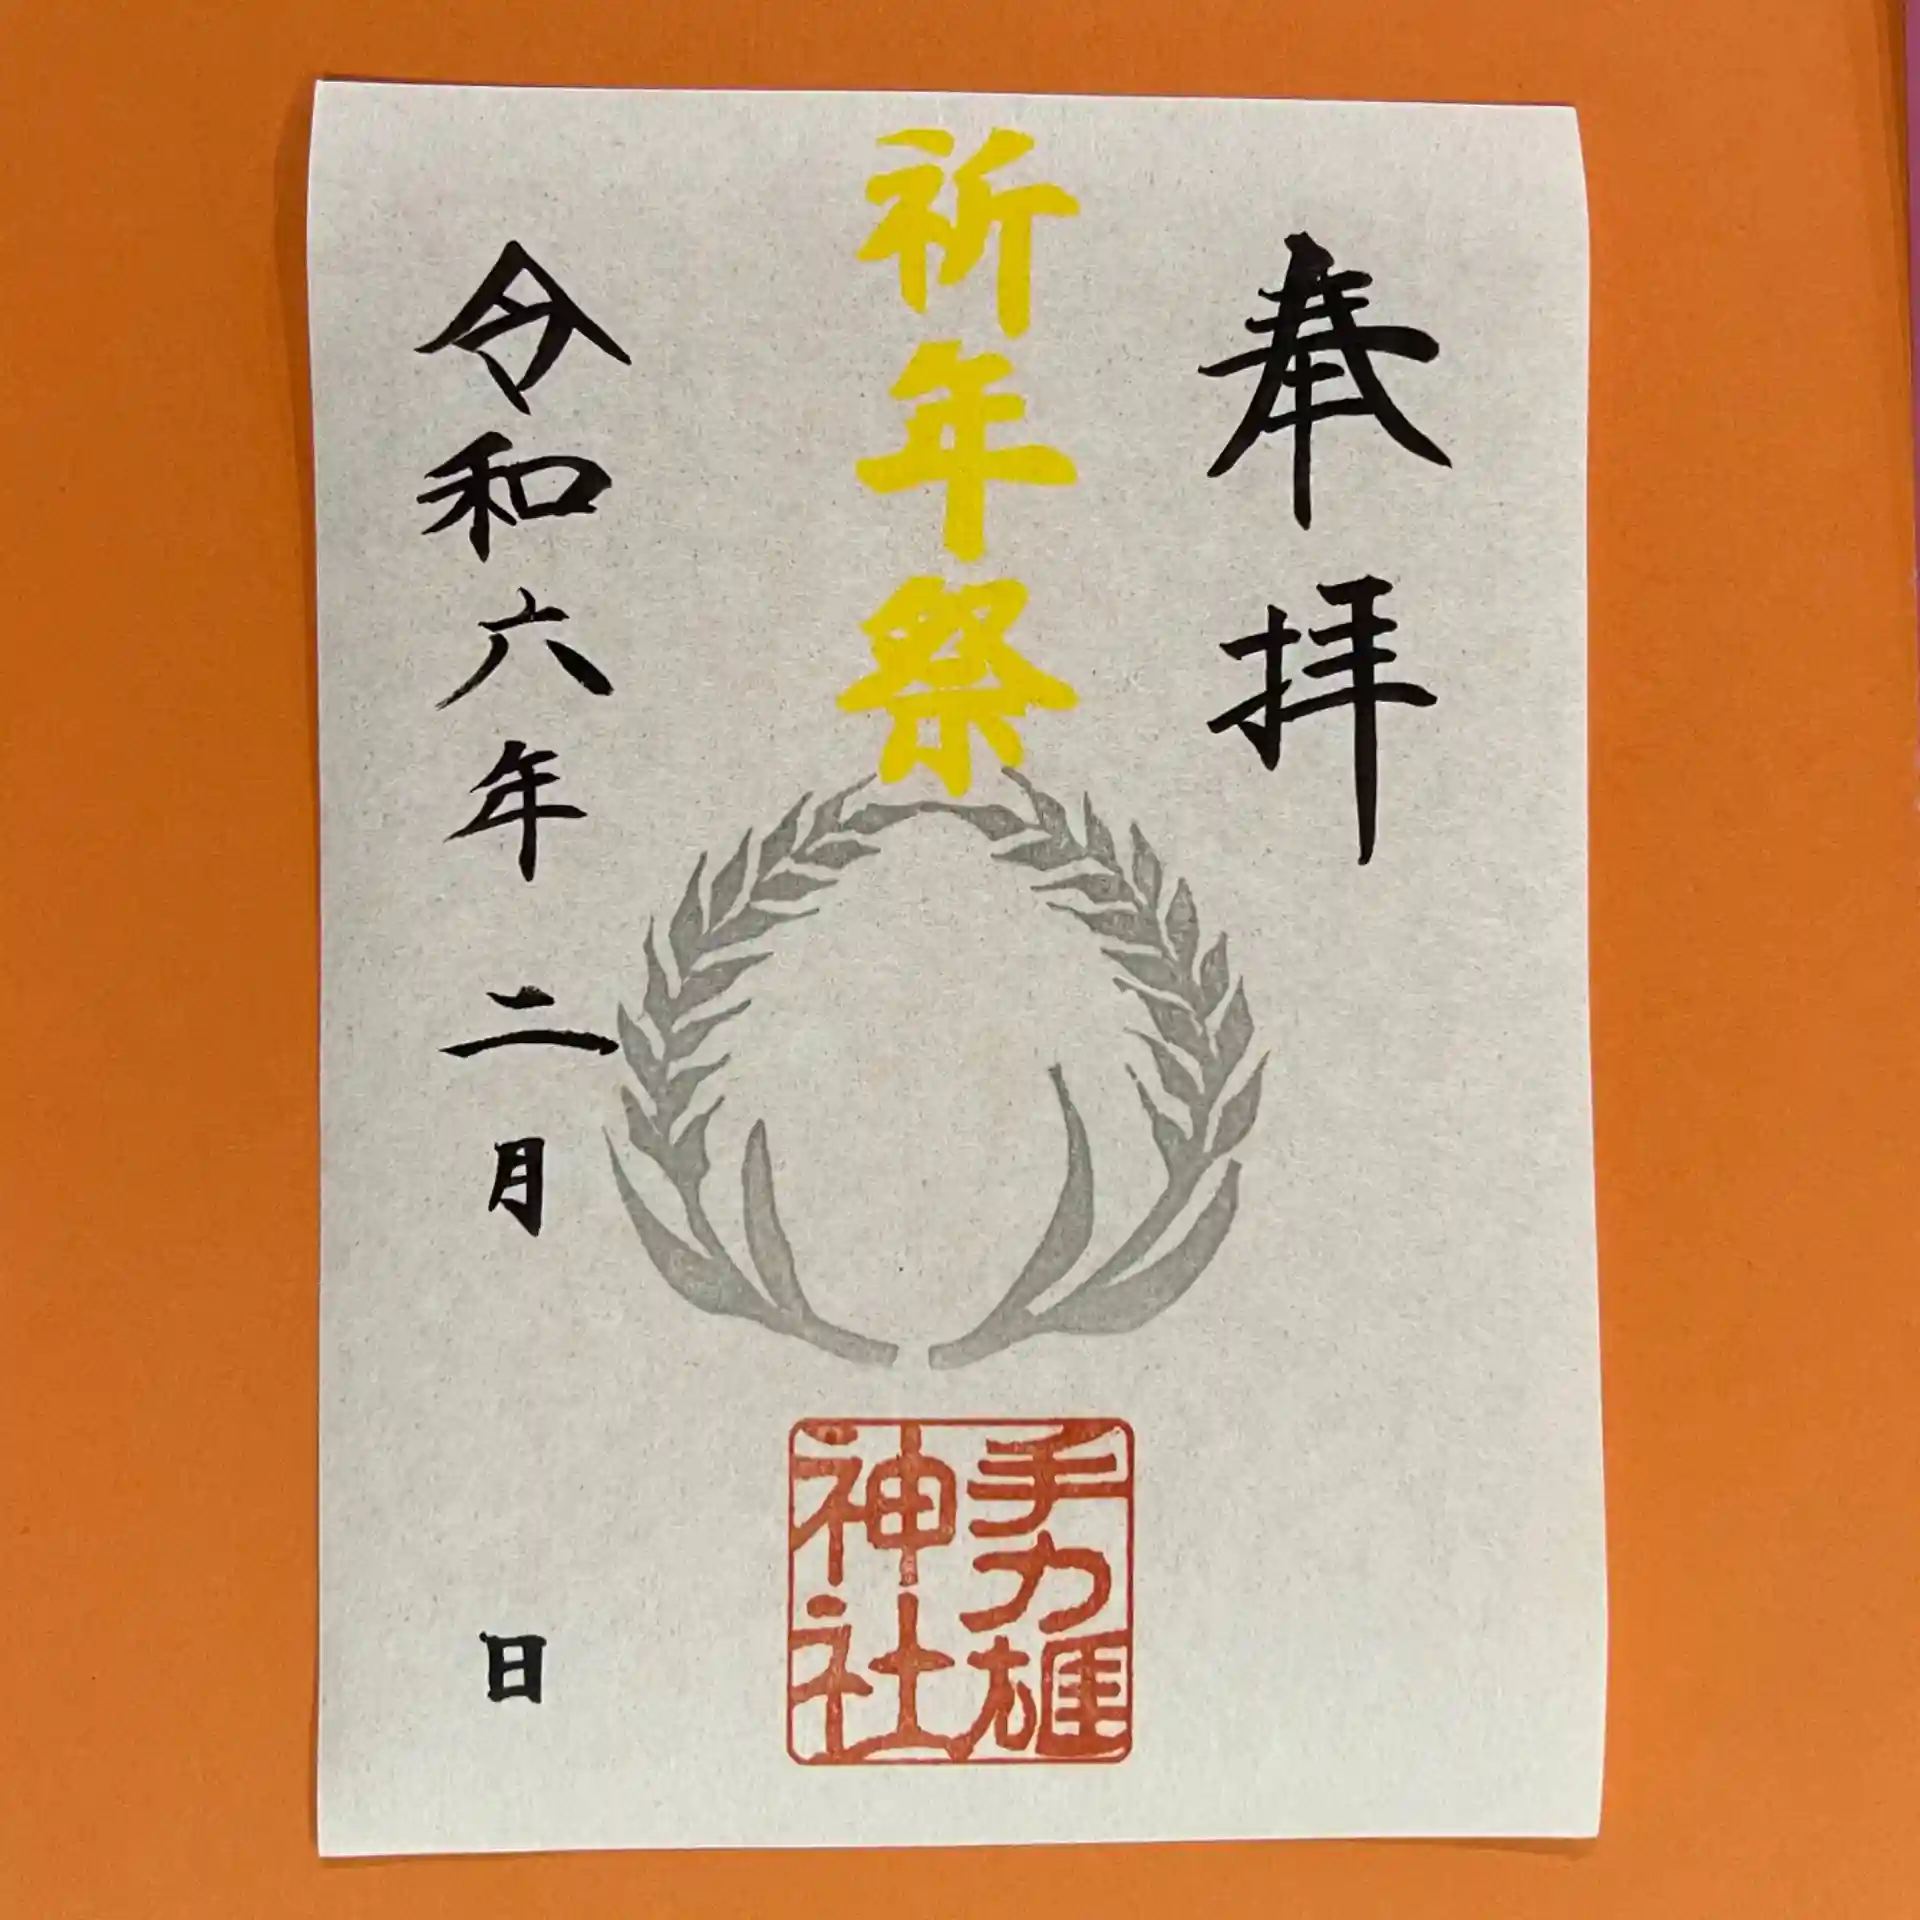 奉拝
祈年祭
手力雄
神社
令和六年二月 日